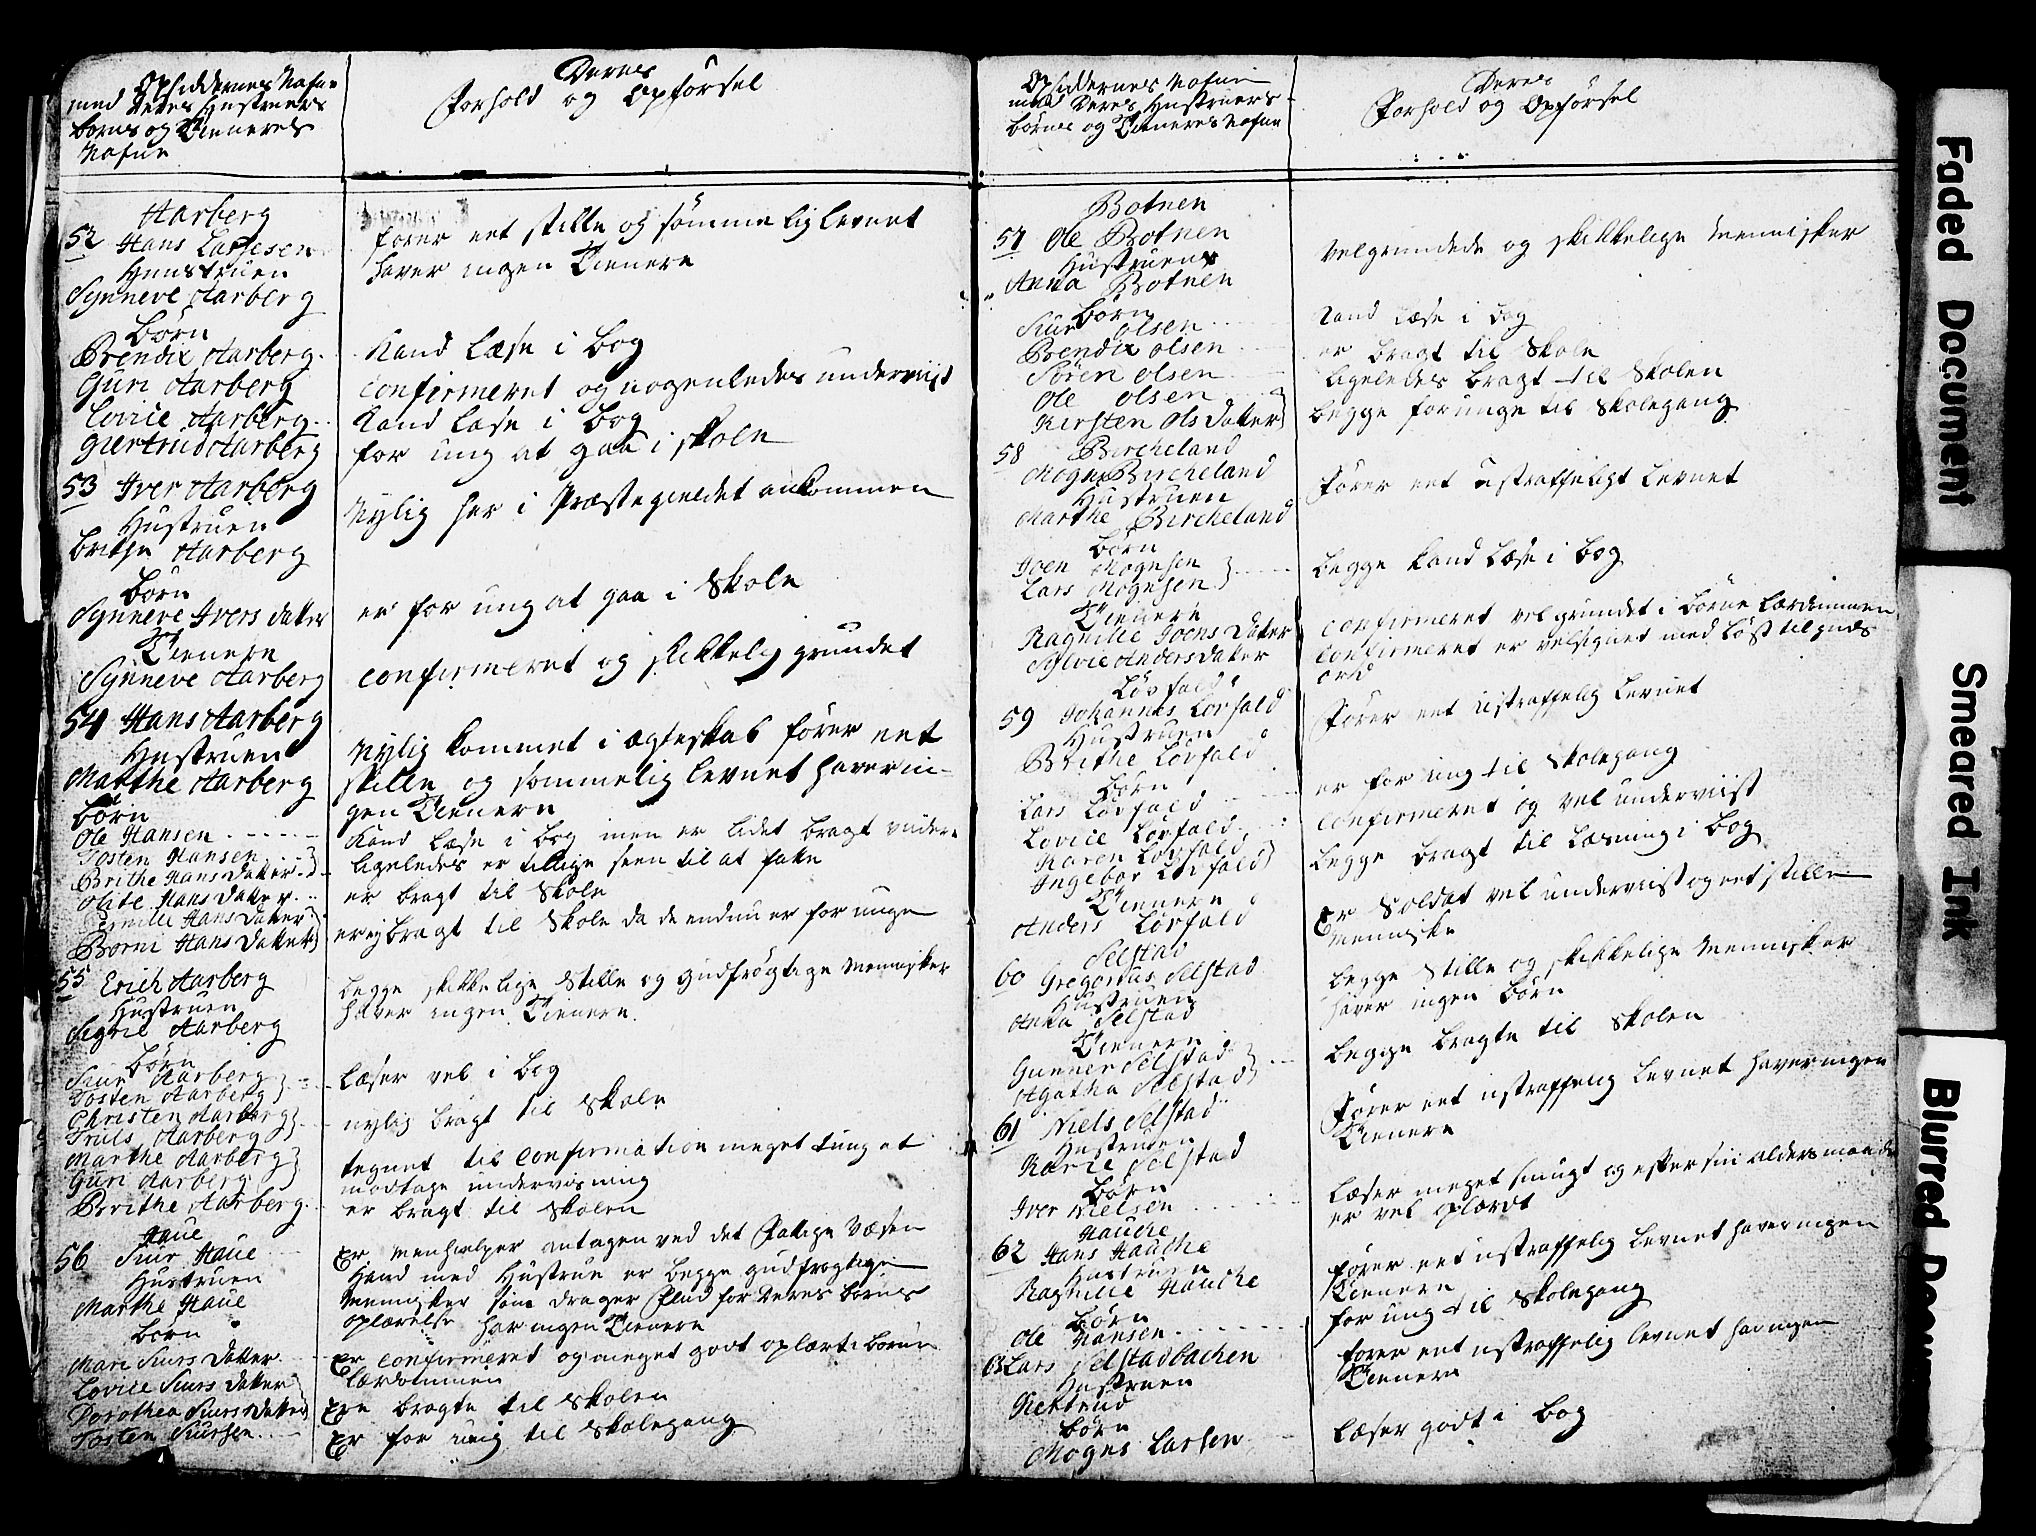 Opsiddernes Nafne
med Deres Hustruers
børns og Tieneres
Nafne
Deres
Forhold og Opførsel
Aarberg
52 Hans Larsesen
Huustruen
Synneve Aarberg
børn
Brendix Aarberg
Guri Aarberg
Lovice Aarberg
Giertrud Aarberg
53 Iver Aarberg
Hustruen
Britje Aarberg
børn
Synneve Ivers datter
Tienere
Synneve Aarberg
54 Hans Aarberg
Hustruen
Marthe Aarberg
børn
Ole Hansen
Tosten Hansen
Brithe Hans datter
Olite Hans datter
Pernille Hans datter
Borni Hans datter
55 Erich Aarberg
Hustruen
Sigrie Aarberg
børn
Siur Aarberg
Tosten Aarberg
Christen Aarberg
Truls Aarberg
Marthe Aarberg
Guri Aarberg
Brithe Aarberg
Haue
56 Siur Haue
Hustruen
Marthe Haue
børn
Mari Siurs datter
Lovice Siurs datter
Dorothea Siurs datter
Tosten Siursen
fører eet stille og sømmelig levnet
haver ingen Tienere
Kand læse i bog
confirmeret og nogenledes underviist
Kand læse i bog
for ung at gaa i skole
Nylig her i Præstegieldet ankommen
er for ung at gaa i Skole
confirmeret og skikkelig grundet
Nylig kommet i ægteskab fører eet
stille og sømmelig levnet haver in-
gen Tienere
Kand læse i bog men er lidet bragt videre
ligeledes er tillige seen til at fatte
er bragt til Skole
er ey bragt til Skole da de endnu er for unge
begge skikkelige stille og gudfrøgtige Mennisker
haver ingen Tienere
læser vel i bog
nylig bragt til Skole
tegnet til confirmation meget tung at
modtage underviisning
er bragt til Skolen
Er Menhielper antagen ved det Fattige Væsen
Hand med Hustrue er begge gudfrøgtige
Mennisker som drager Flid for Deres børns
oplærelse har ingen Tienere
Er confirmeret og meget godt oplært i børne
lærdommen
Ere bragte til Skolen
Er for ung til Skolegang
Opsiddernes Nafne
med Deres Hustruers
børns og Tieneres Nafne
Deres
Forhold og Opførsel
Botnen
57 Ole Botnen
Hustruens
Anna Botnen
børn
Siur Olsen
Brendix Olsen
Søren Olsen
Ole Olsen
Kirsten Ols datter
Bircheland
58
Mogns Bircheland
Hustruen
Marthe Bircheland
børn
Joen Mognsen
Lars Mognsen
Tienere
Ragnille Joens datter
Sylvie Anders datter
Løvfald
59 Johannes Lovfald
Hustruen
Brithe Lovfald
børn
Lars Lovfald
Lovice Lovfald
Karen Lovfald
Ingebor Lovfald
Tienere
Anders Lovfald
Selstad
60 Gregorius Selstad
Hustruen
Anna Selstad
Tienere
Gunner Selstad
Agatha Selstad
61 Niels Selstad
Hustruen
Karie Selstad
børn
Iver Nielsen
Hauche
62 Hans Hauche
Hustruen
Ragnille Hauche
børn
Ole Hansen
63 Lars Selstadbachen
Hustruen
Giertrud
børn
Mogns Larsen
velgrundede og skikkelige Mennisker
Kand læse i bog
er bragt til Skole
ligeledes bragt til Skolen
begge for unge til Skolegang
Fører eet ustraffeligt levnet
begge Kand læse i bog
confirmeret vel grundet i børne lærdommen
confirmeret er velsignet med løst til guds
ord
Fører eet ustraffelig levnet
er for ung til Skolegang
confirmeret og vel underviist
begge bragt til læsning i bog
Er Soldat vel underviist og eet stille
Menniske
begge stille og skikkelige Mennisker
haver ingen børn
begge bragte til Skolen
Fører eet ustraffelig levnet haver ingen
Tienere
læser meget smugt og efter sin alders maade
er vel oplærdt
fører eet ustraffelig levnet haver ingen
Tienere
for ung til Skolegang
fører eet ustraffelig levnet har ingen
Tienere
læser godt i bog
Faded Document
Smeared Ink
Blurred Docum